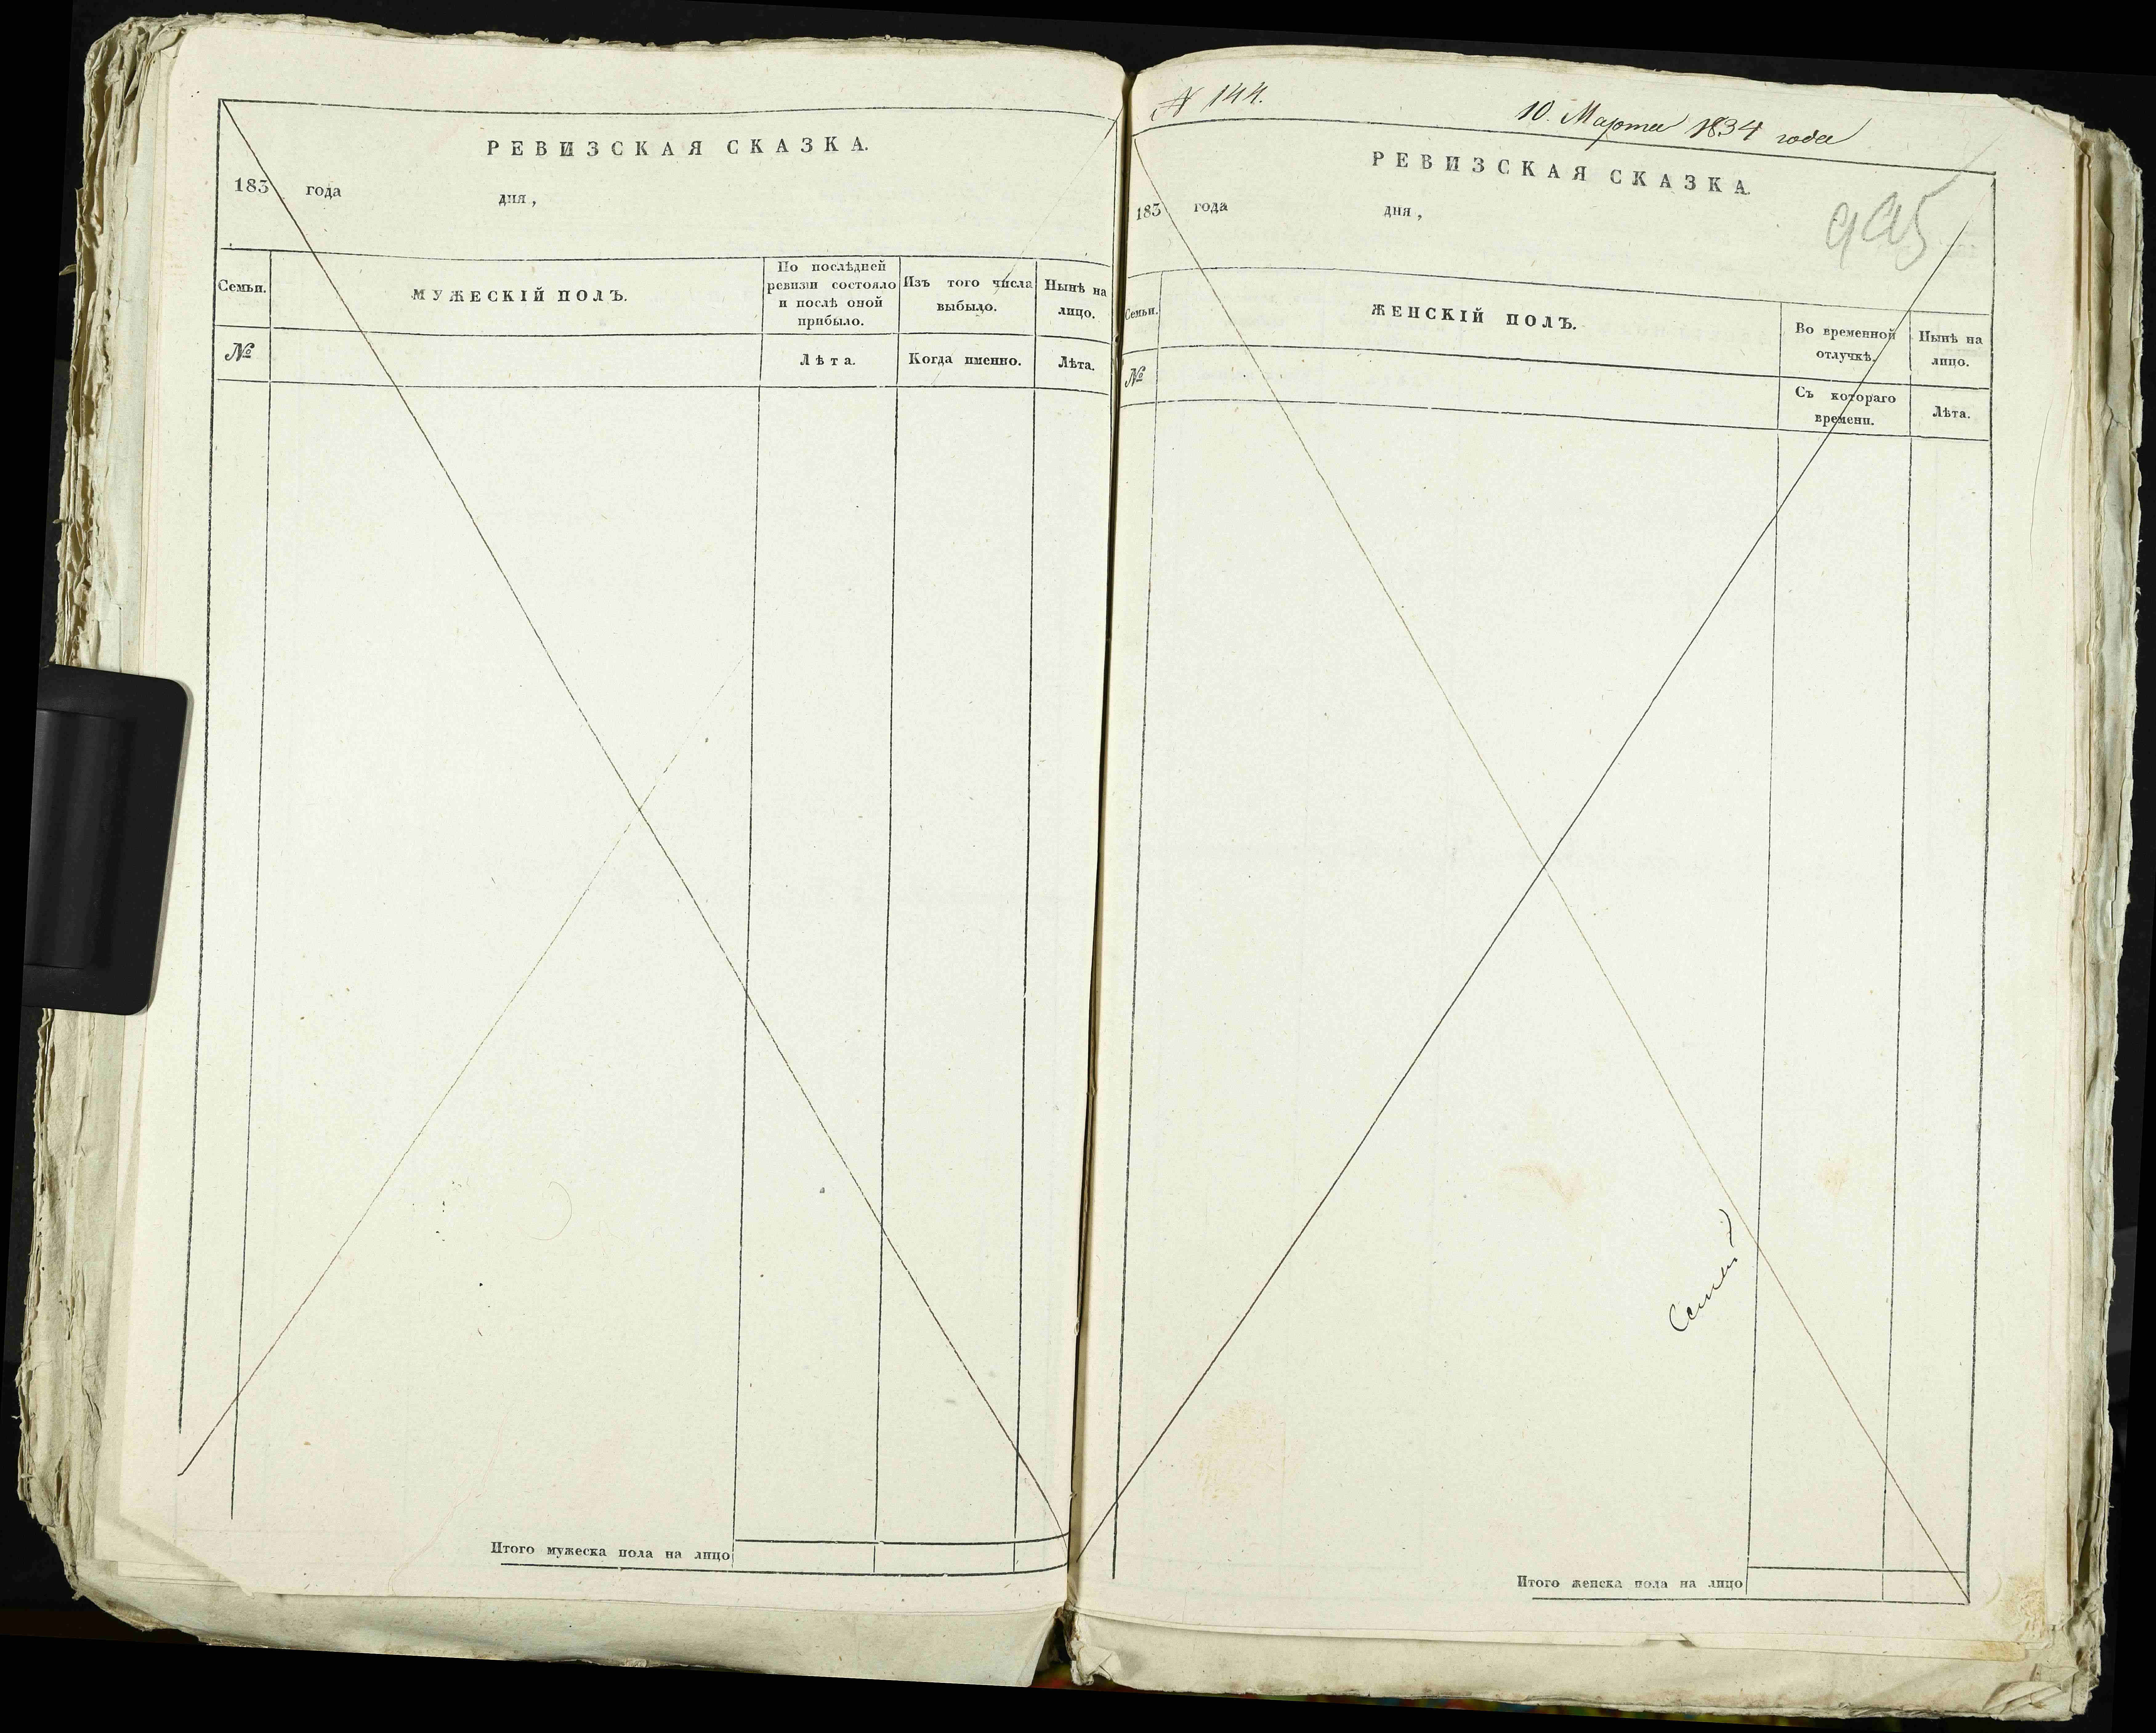 РЕВИЗСКАЯ СКАЗКА.
183 года дня,
Семьи.
МУЖЕСКІЙ ПОЛЪ.
По послѣдней ревизіи состояло и послѣ оной прибыло.
Изъ того числа выбыло.
Нынѣ на лицо.
№
Лѣта.
Когда именно.
Лѣта.
Итого мужеска пола на лицо
№ 144.
10. Марта 1834 года
РЕВИЗСКАЯ СКАЗКА.
183 года дня,
Семьи.
ЖЕНСКІЙ ПОЛЪ.
Во временной отлучкѣ.
Нынѣ на лицо.
№
Съ котораго времени.
Лѣта.
Итого женска пола на лицо